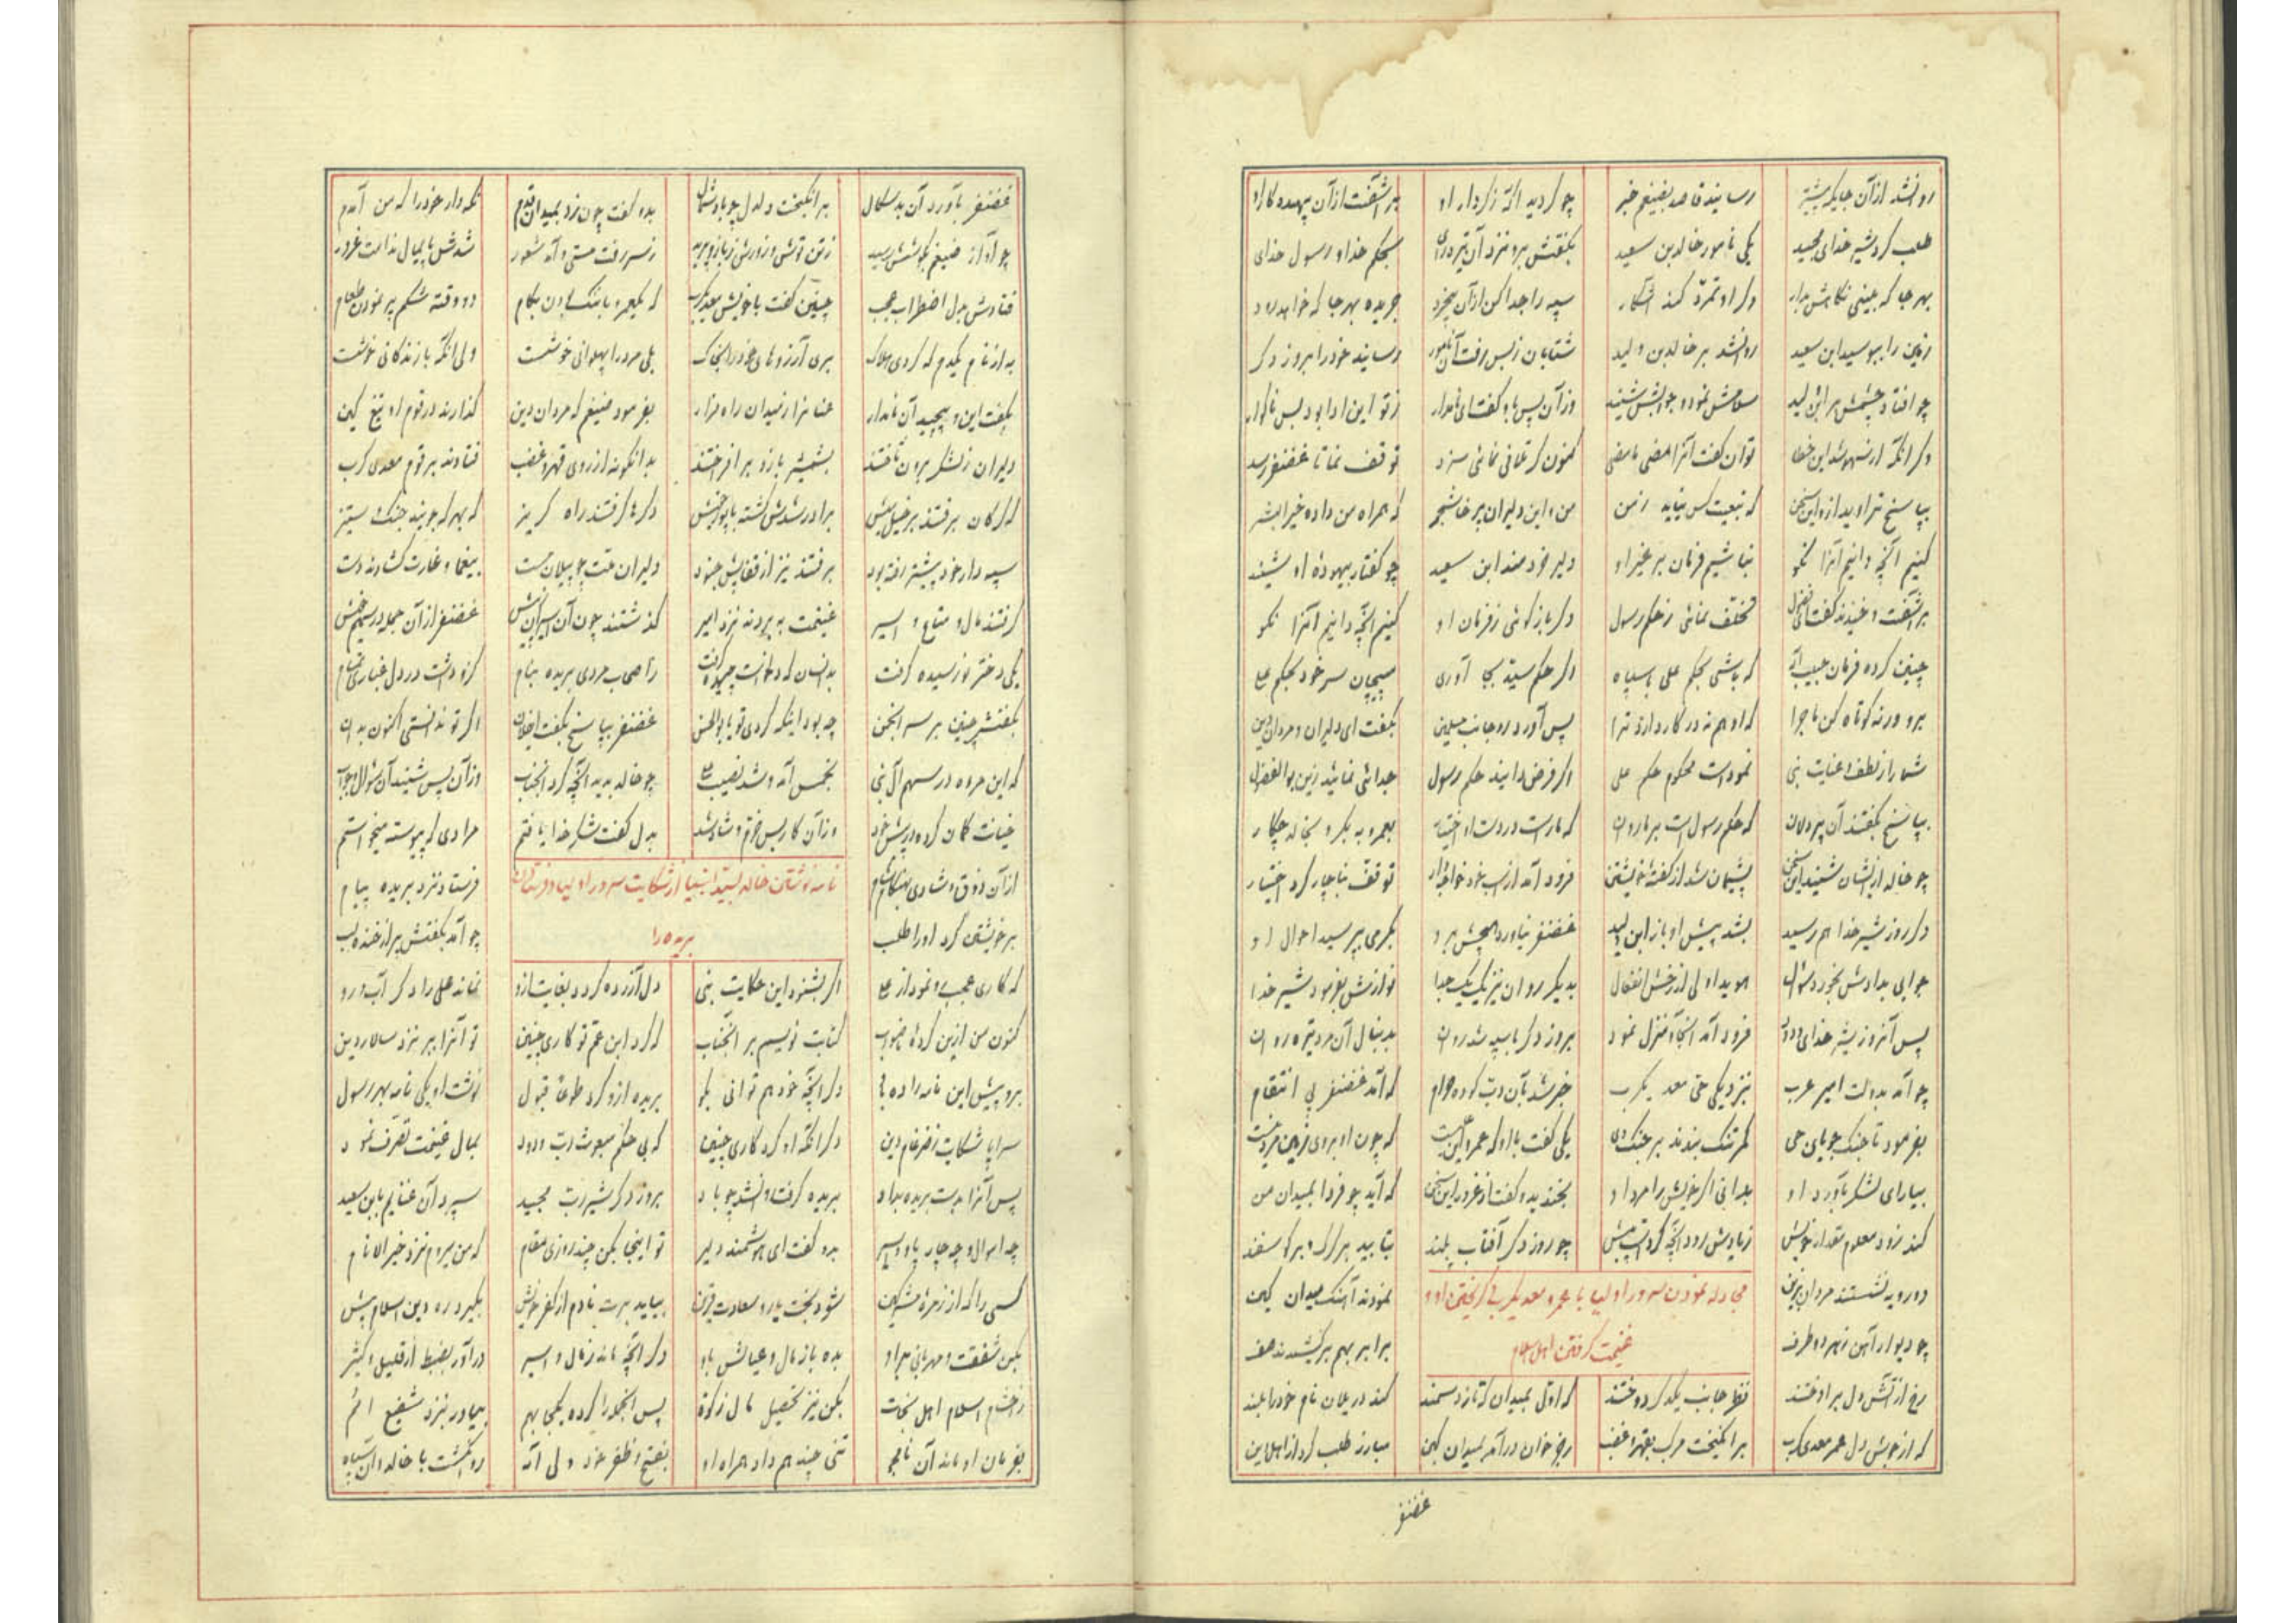 روانشد از آن جایگه پیشتر رسانید قاصد بضیغم خبر چو گردید آگه ز کردار او برآشفت از آن بیهده کار او
طلب کرد شیر خدای مجید یکی نامور خالد بن سعید بگفتش برو نزد آن تیره رای بحکم خدا و رسول خدای
بهر جا که بینی نگاهش بدار وگر او تمرد کند آشکار سپه را جدا کن از آن بیخرد جریده بهر جا که خواهد رود
زمین را ببوسید ابن سعید روانشد بر خالد بن ولید شتابان ز پس رفت آن نامور رسانید خود را بروز دگر
چو افتاد چشمش بر ابن ولید سلامش نمود و جوابش شنید وزآن پس باو گفت ای نامدار ز تو این ادا بود بس ناگوار
وگر آنکه از سهو شد این خطا توان گفت آنرا مضی ما مضی کنون گر تلافی نمائی سزد توقف نما تا غضنفر رسد
بپاسخ تراوید ازو این سخن که تبعیت کس نیاید ز من من و این دلیران پرخاشجر که همراه من داده خیر البشر
کنیم آنچه دانیم آنرا نکو نباشیم فرمان بر غیر او دلیر خردمند ابن سعید چو گفتار بیهوده او شنید
برآشفت و خندید و گفت ای فضول تخلف نمائی ز حکم رسول دگر باز گوئی ز فرمان او کنیم آنچه دانیم آنرا نکو
چنین کرده فرمان حبیب آله که باشی بحکم علی با سپاه اگر حکم سید بجا آوری مپیچان سر خود ز حکم علی
برو ورنه کوتاه کن ماجرا که او هم نه در کار دارد ترا پس آورد رو جانب مسلمین بگفت ای دلیران و مردان دین
شما را ز لطف و عنایت نبی نموداست محکوم حکم علی اگر فرض دانید حکم رسول جدائی نمائید زین بوالفضول
بپاسخ بگفتند آن پردلان که حکم رسول است بر ما روان که ما راست در دست او اختیار بعمرو به بکر و بخالد چکار
چو خالد ازیشان شنید این سخن پشیمان شد از گفته خویشتن فرود آمد از اسب خود خوار و زار توقف بناچار کرد اختیار
دگر روز شیر خدا هم رسید بشد پیش او باز ابن ولید غضنفر نیاورد هیچش برو بگرمی بپرسید احوال او
جوابی بدادش بخورد سؤال هویدا ولی از رخش انفعال بدیگر روان نیز یک یک جدا نوازش بفرمود شیر خدا
پس آنروز شیر خدای ودود فرود آمد آنجا و منزل نمود بروز دگر با سپه شد روان بدنبال آن مرد تیره روان
چو آمد بدولت امیر عرب بنزدیکی حی معد یکرب خبر شد بآن دیت کرده حرام که آمد غضنفر پی انتقام
بفرمود تا جنگ جویان حی کمر تنگ بندند بر جنگ وی یکی گفت با او که عمرو این علی است که چون او بروی زمین مرد نیست
بیارای لشکر بآورد او بدانی اگر خویش را مرد او بخندید و گفت از غرور این سخن که آید چو فردا بمیدان من
کند زود معلوم مقدار خویش ز یادش رود آنچه کرداست پیش چو روز دگر آفتاب بلند بتابید بر گرگ و بر گوسفند
دو رویه نشستند مردان بزین نمودند آهنگ میدان کین
مجادله نمودن سرور اولیا با عمرو معدیکرب و گریختن او و
غنیمت گرفتن اهل اسلام
چو دیوار آهن ز هر دو طرف برابر بهم برکشیدند صف
رخ از آتش دل برافروختند نظر جانب یکدگر دوختند که اول بمیدان که تازد سمند کند در یلان نام خود را بلند
که از جوشش دل عمر معدیکرب برانگیخت مرکب بقهر و غضب رجز خوان درآمد بمیدان کین مبارز طلب کرد از اهل دین
غضنفر
غضنفر بآورد آن بدسگال برانگیخت دلدل چو باد شمال بدو گفت چون زد بمیدان قدم نگه دار خود را که من آمدم
چو آواز ضیغم بگوشش رسید ز تن توش و زورش ز بازو پرید ز سر رفت مستی و آمد شعور شدش پایمال ندامت غرور
فتادش بدل اضطراب عجب چنین گفت با خویش معدیکرب که یکعمر با ننگ بودن بکام دو وقته شکم پر نمودن طعام
به از نام یکدم که گردی هلاک بری آرزوهای خود را بخاک بلی مرد را پهلوانی خوشست ولی آنکه با زندگانی خوشست
بگفت این و پیچید آن نامدار عنان را ز میدان براه فرار بفرمود ضیغم که مردان دین گذارند در قوم او تیغ کین
دلیران ز لشکر برون تاختند بشمشیر بازو برافراختند بدانگونه از روی قهر و غضب فتادند بر قوم معدیکرب
که گرگان برفتند بر خیل میش برادر شدش کشته با پور خویش دگرها گرفتند راه گریز که بهر که جویند جنگ و ستیز
سپه دار خود پیشتر رفته بود برفتند نیز از قفایش جنود دلیران ملت چو پیلان مست بیغما و غارت گشادند دست
گرفتند مال و متاع و اسیر غنیمت به بردند نزد امیر گذشتند چون آن اسیران ز پیش غضنفر از آن جمله در سهم خمس
یکی دختر نورسیده گرفت بدانسان که دلخواست چیده گرفت ز اصحاب مردی بریده بنام کزو داشت در دل غباری تمام
بگفتش چنین بر سر انجمن چه بود اینکه کردی تو یا بوالحسن غضنفر بپاسخ بگفت ای فلان اگر تو ندانستی اکنون بدان
که این مرده در سهم آل نبی بخمس آمد و شد نصیب علی چو خالد بدید آنچه کرد آنجناب وزآن پس شنید آن سؤال و جواب
خیانت گمان کرده در پیش خود وزآن کار بس خرم و شاد شد بدل گفت شکر خدا یافتم مرادی که پیوسته میخواستم
از آن ذوق و شادی بهنگام شام فرستاد نزد بریده پیام
نامه نوشتن خالد بسید انبیا از شکایت سرور اولیا و فرستادن
بریده را
بر خویشتن کرد او را طلب چو آمد بگفتش پر از خنده لب
که کاری عجب رو نمود از علی اگر بشنود این حکایت نبی دل آزرده گردد بغایت ازو نماند علی را دگر آب رو
کنون من ازین کرده ناصواب کتابت نویسم بر آنجناب که کرد ابن عم تو کاری چنین تو آنرا ببر نزد سالار دین
برو پیش این نامه را ده بوی دگر آنچه خود هم توانی بگو بریده ازو کرد طوعا قبول نوشت او یکی نامه بهر رسول
سراپا شکایت ز ضرغام دین دگر آنکه او کرد کاری چنین که بی حکم مبعوث رب ودود بمال غنیمت تصرف نمود
پس آنرا بدست بریده بداد بریده گرفت و بشد چو باد بروز دگر شیر رب مجید سپرد آن غنایم بابن سعید
چه اموال و چه چارپا و اسیر بدو گفت ای هوشمند دلیر تو اینجا بکن چند روزی مقام که من میروم نزد خیر الانام
کسی را که از زمره مشرکین شود بخت یار و سعادت قرین بیاید برت نادم از کفر خویش بگیرد ره دین اسلام پیش
بکن شفقت و مهربانی براو بده باز مال و عیالش باو دگر آنچه ماند ز مال و اسیر درآور بضبط از قلیل و کثیر
ز اخشام اسلام اهل نجات بکن نیز تحصیل مال زکوة پس آنجمله را کرده یکجا بهم بیاور بنزد شفیع امم
بفرمان او ماند آن نامجو تنی چند هم داد همراه او بفتح و ظفر خود ولی آله روان گشت با خالد و آن سپاه